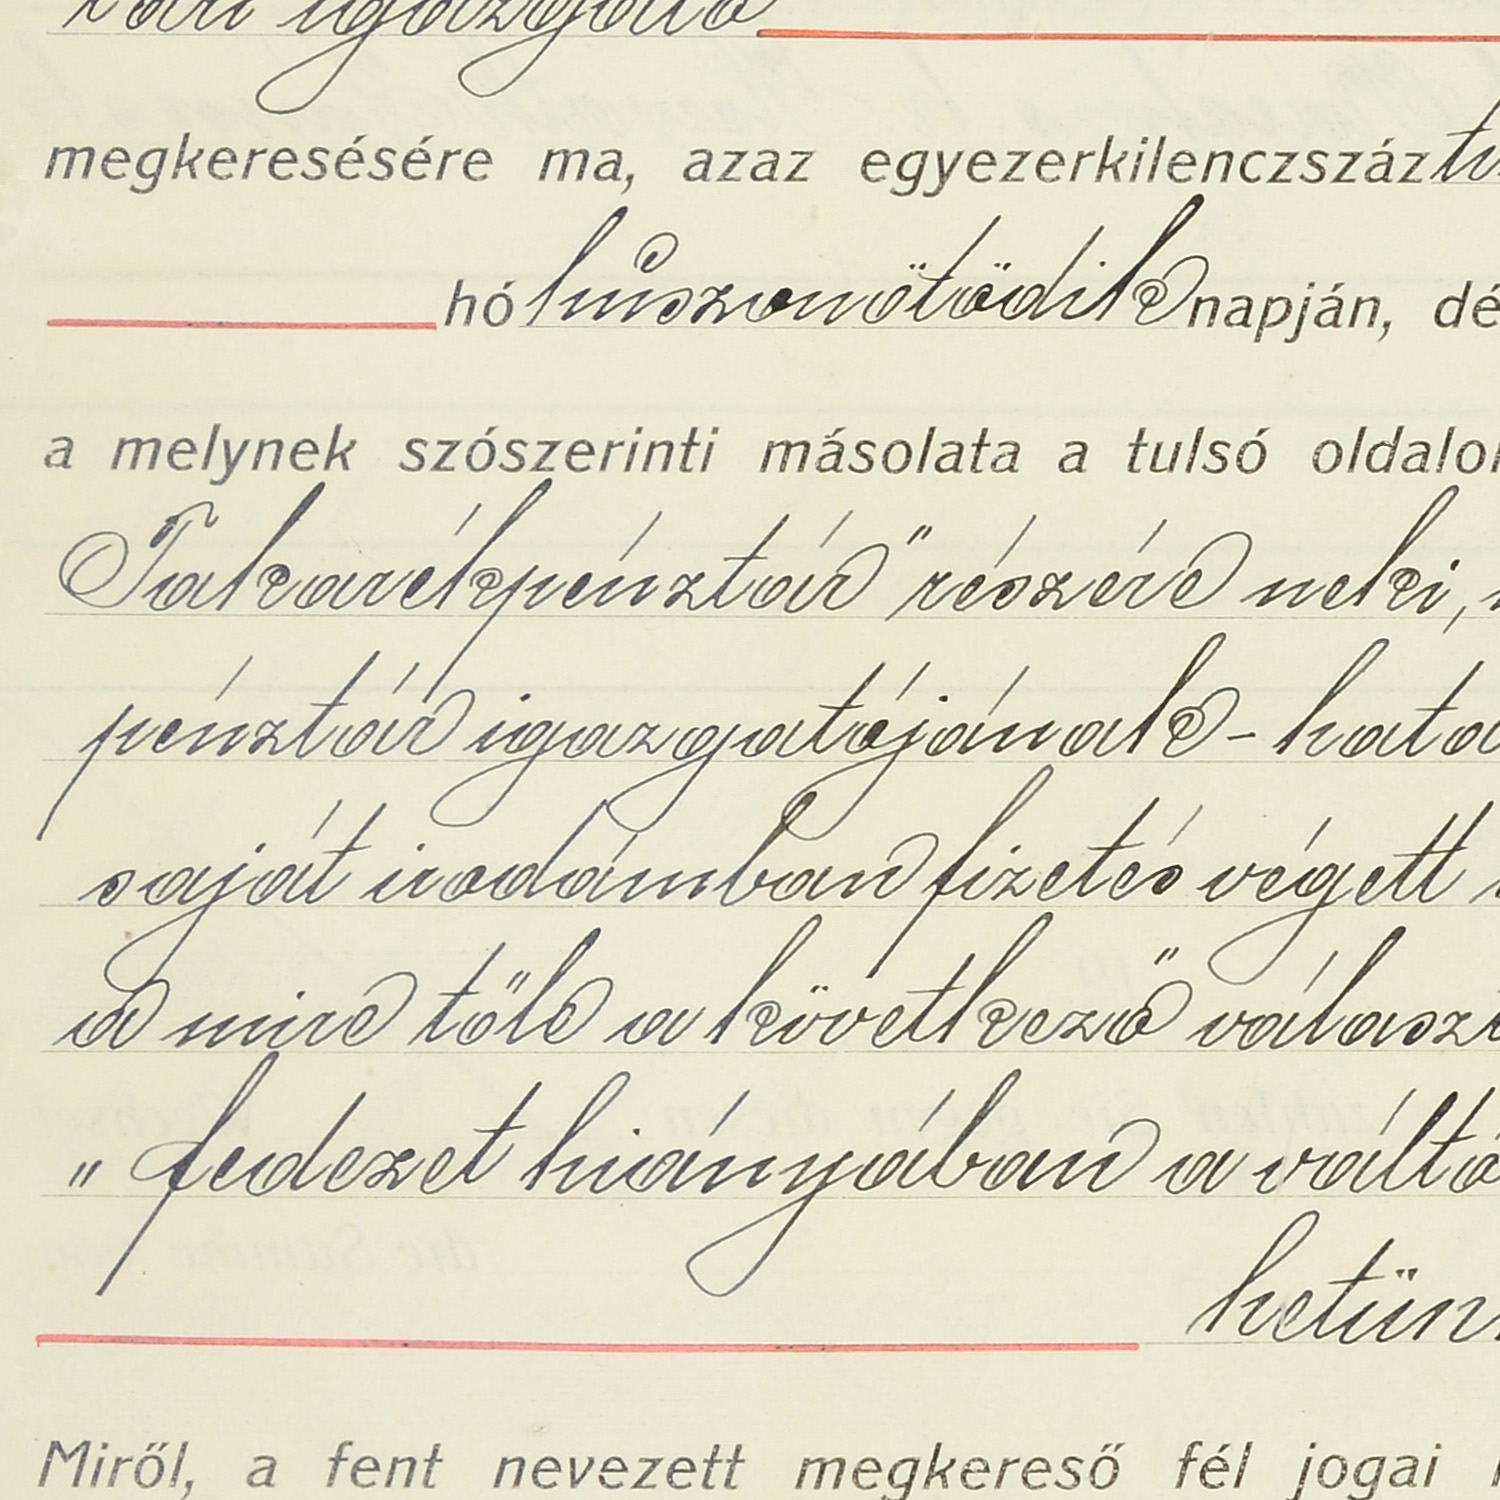 tári igazgató
megkeresésére ma, azaz egyezerkilenczszáz
hó huszonötödik napján, dé
a melynek szószerinti másolata a tulsó oldalon
Takarékpénztár" részére neki,
pénztár igazgatójának - hata
saját irodámban fizetés végett
a mire tőle a következő választ
" fedezet hiányában a váltó
hetün
Miről, a fent nevezett megkereső fél jogai